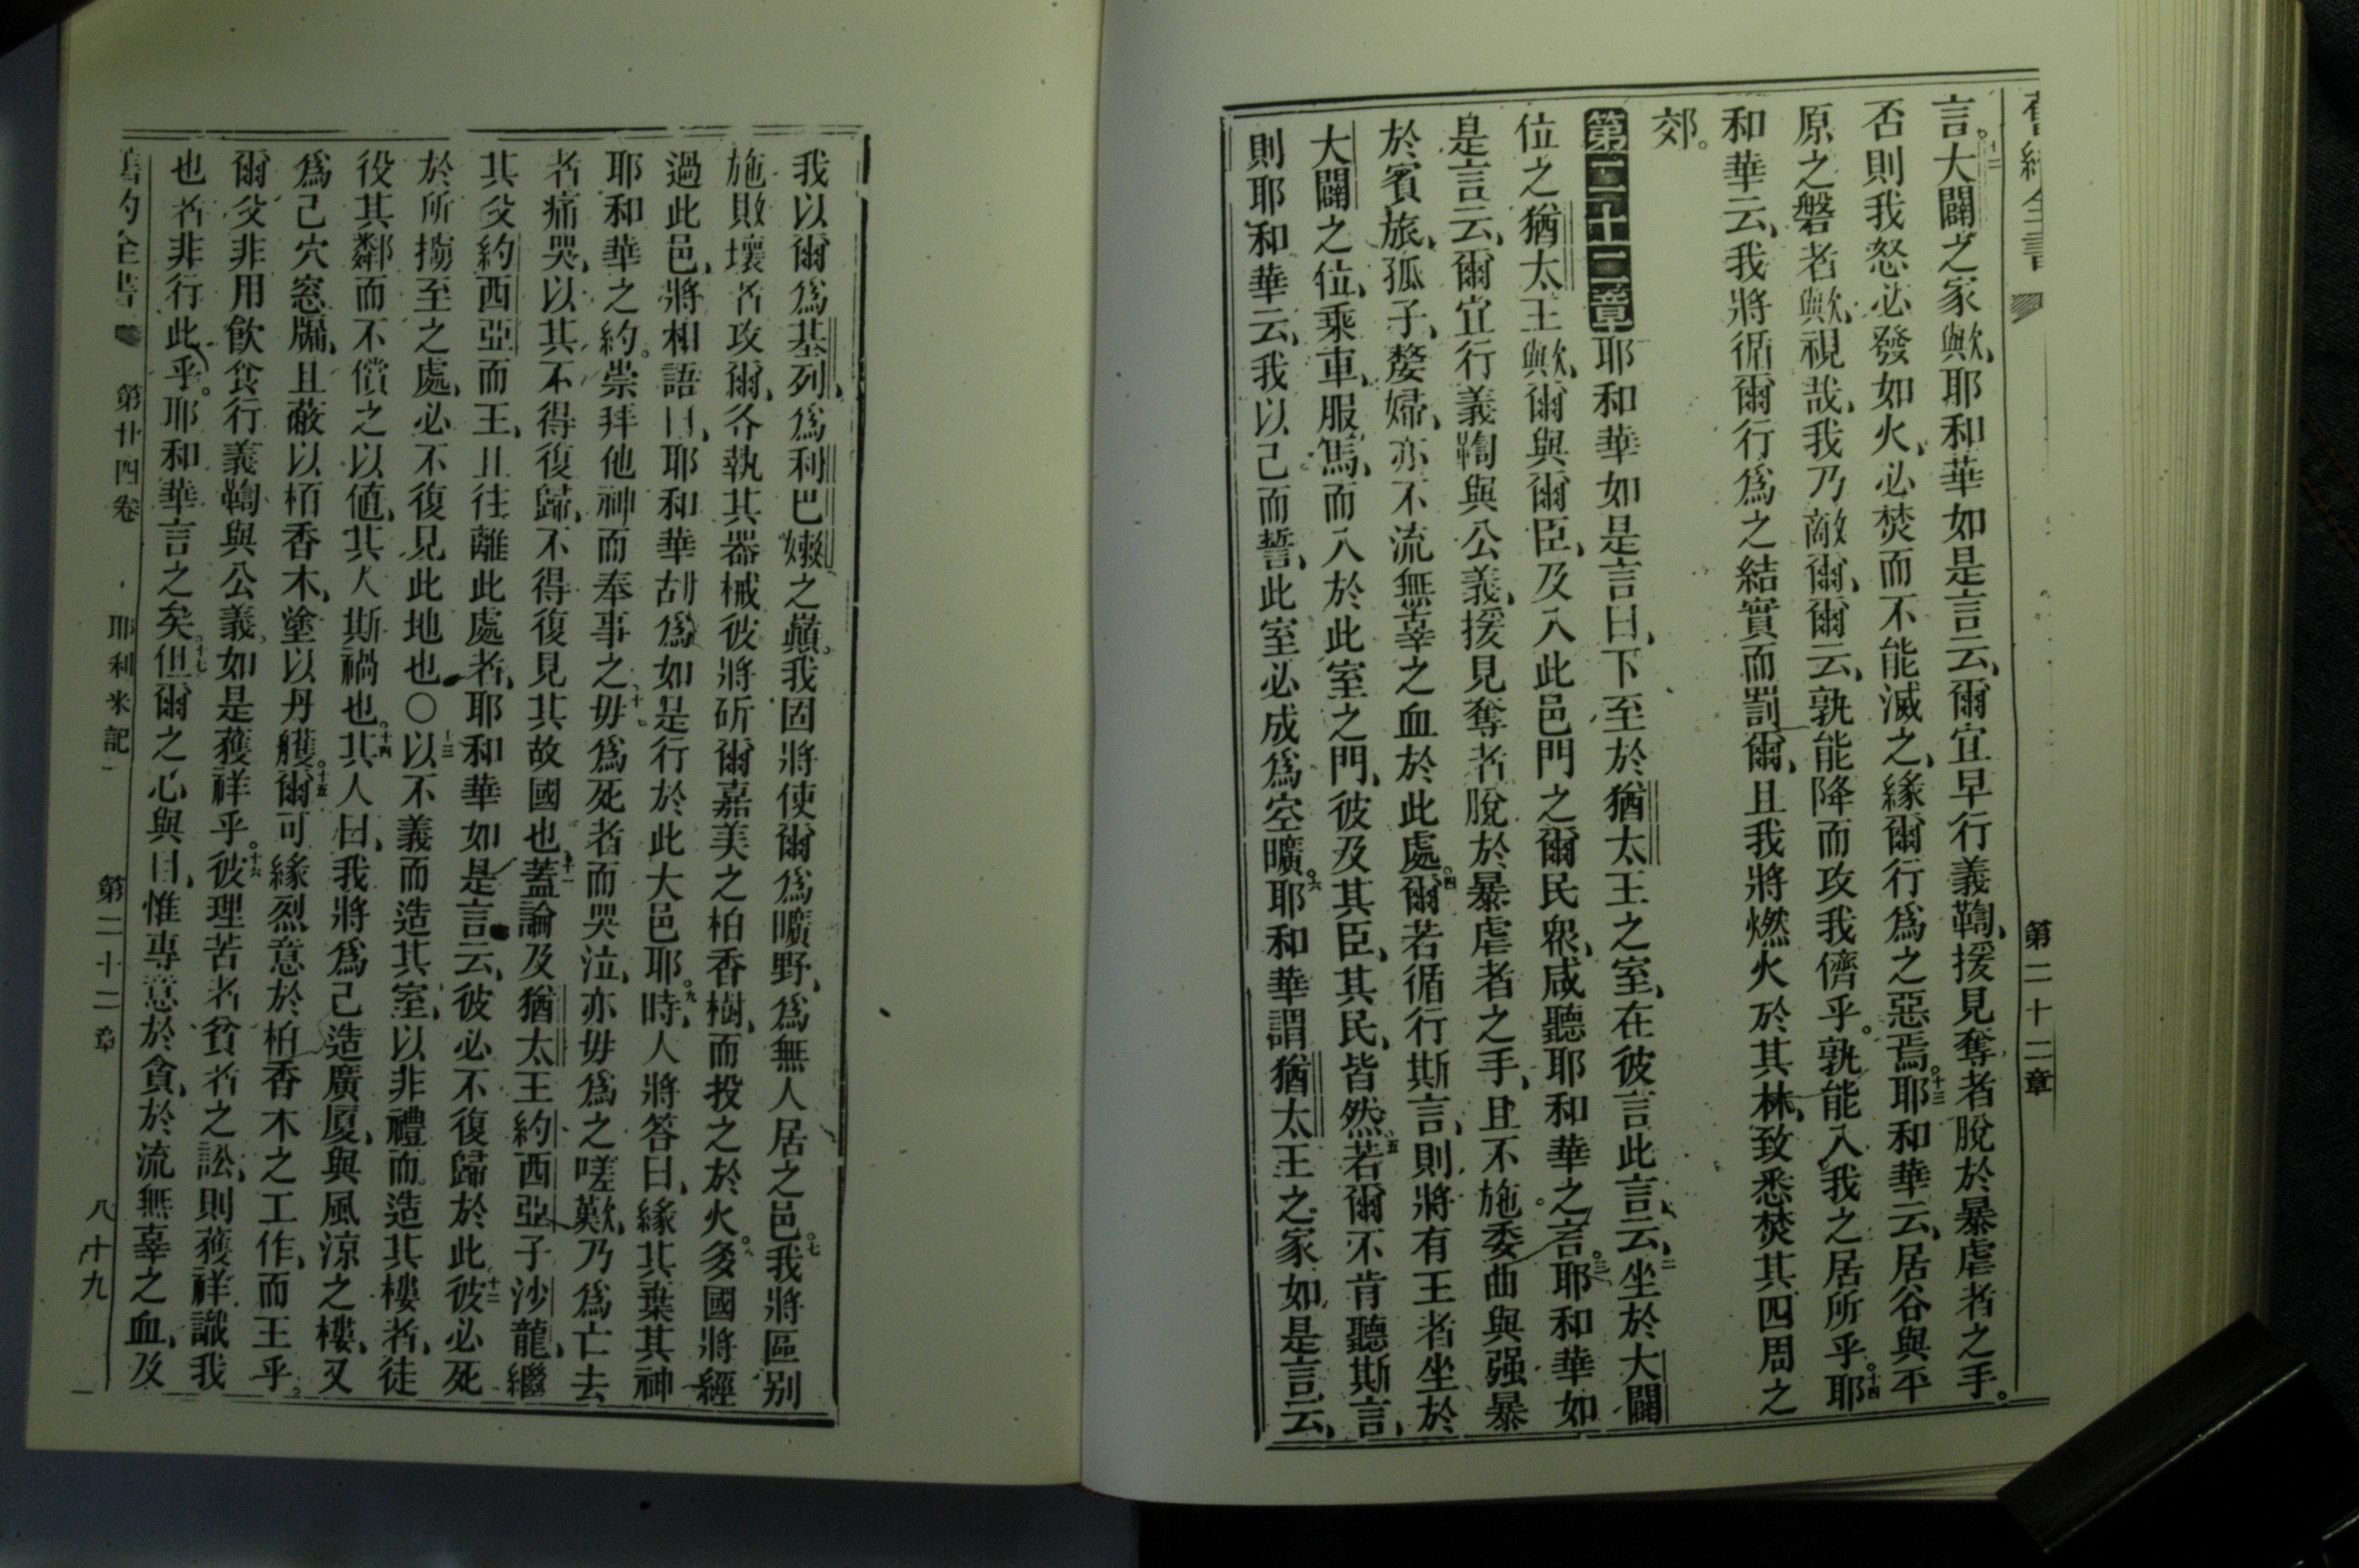 舊約全書
第二十二章
言。十二大闢之家歟、耶和華如是言云、爾宜早行義鞫、援見奪者脫於暴虐者之手。
否則我怒必發如火、必焚而不能滅之、緣爾行爲之惡焉。十三耶和華云、居谷與平
原之磐者歟、視哉、我乃敵爾、爾云、孰能降而攻我儕乎。孰能入我之居所乎。十四耶
和華云、我將循爾行爲之結實而罰爾、且我將燃火於其林、致悉焚其四周之
郊。
第二十二章耶和華如是言曰、下至於猶太王之室、在彼言此言、云、二坐於大闢
位之猶太王歟、爾與爾臣、及入此邑門之爾民衆、咸聽耶和華之言。三耶和華如
是言云、爾宜行義鞫與公義、援見奪者脫於暴虐者之手、且不施委曲與强暴
於賓旅、孤子、嫠婦、亦不流無辜之血於此處。四爾若循行斯言、則將有王者坐於
大闢之位、乘車、服馬、而入於此室之門、彼及其臣、其民、皆然。五若爾不肯聽斯言、
則耶和華云、我以己而誓、此室必成爲空曠。六耶和華謂猶太王之家如是言云、
我以爾爲基列、爲利巴嫩之巔。我固將使爾爲曠野、爲無人居之邑。七我將區别
施敗壞者攻爾、各執其器械彼將斫爾嘉美之柏香樹、而投之於火。八多國將經
過此邑、將相語曰、耶和華胡爲如是行於此大邑耶。九時、人將答曰、緣其棄其神
耶和華之約。崇拜他神而奉事之。十毋爲死者而哭泣、亦毋爲之嗟歎、乃爲亡去
者痛哭、以其不得復歸、不得復見其故國也。十一蓋論及猶太王約西亞子沙龍、繼
其父約西亞而王、且往離此處者、耶和華如是言云、彼必不復歸於此十二彼必死
於所擄至之處、必不復見此地也〇十三以不義而造其室、以非禮而造其樓者、徒
役其鄰而不償之以値、其人斯禍也。十四其人曰、我將爲己造廣厦、與風涼之樓、又
爲己穴窓牖、且蔽以栢香木、塗以丹艧。十五爾可緣烈意於柏香木之工作、而王乎。
爾父非用飲食行義鞫與公義、如是獲祥乎。十六彼理苦者貧者之訟、則獲祥識我
也者非行此乎。耶和華言之矣。十七但爾之心與目、惟專意於貪、於流無辜之血、及
舊約全書 第廿四卷 耶利米記 第二十二章 八十九